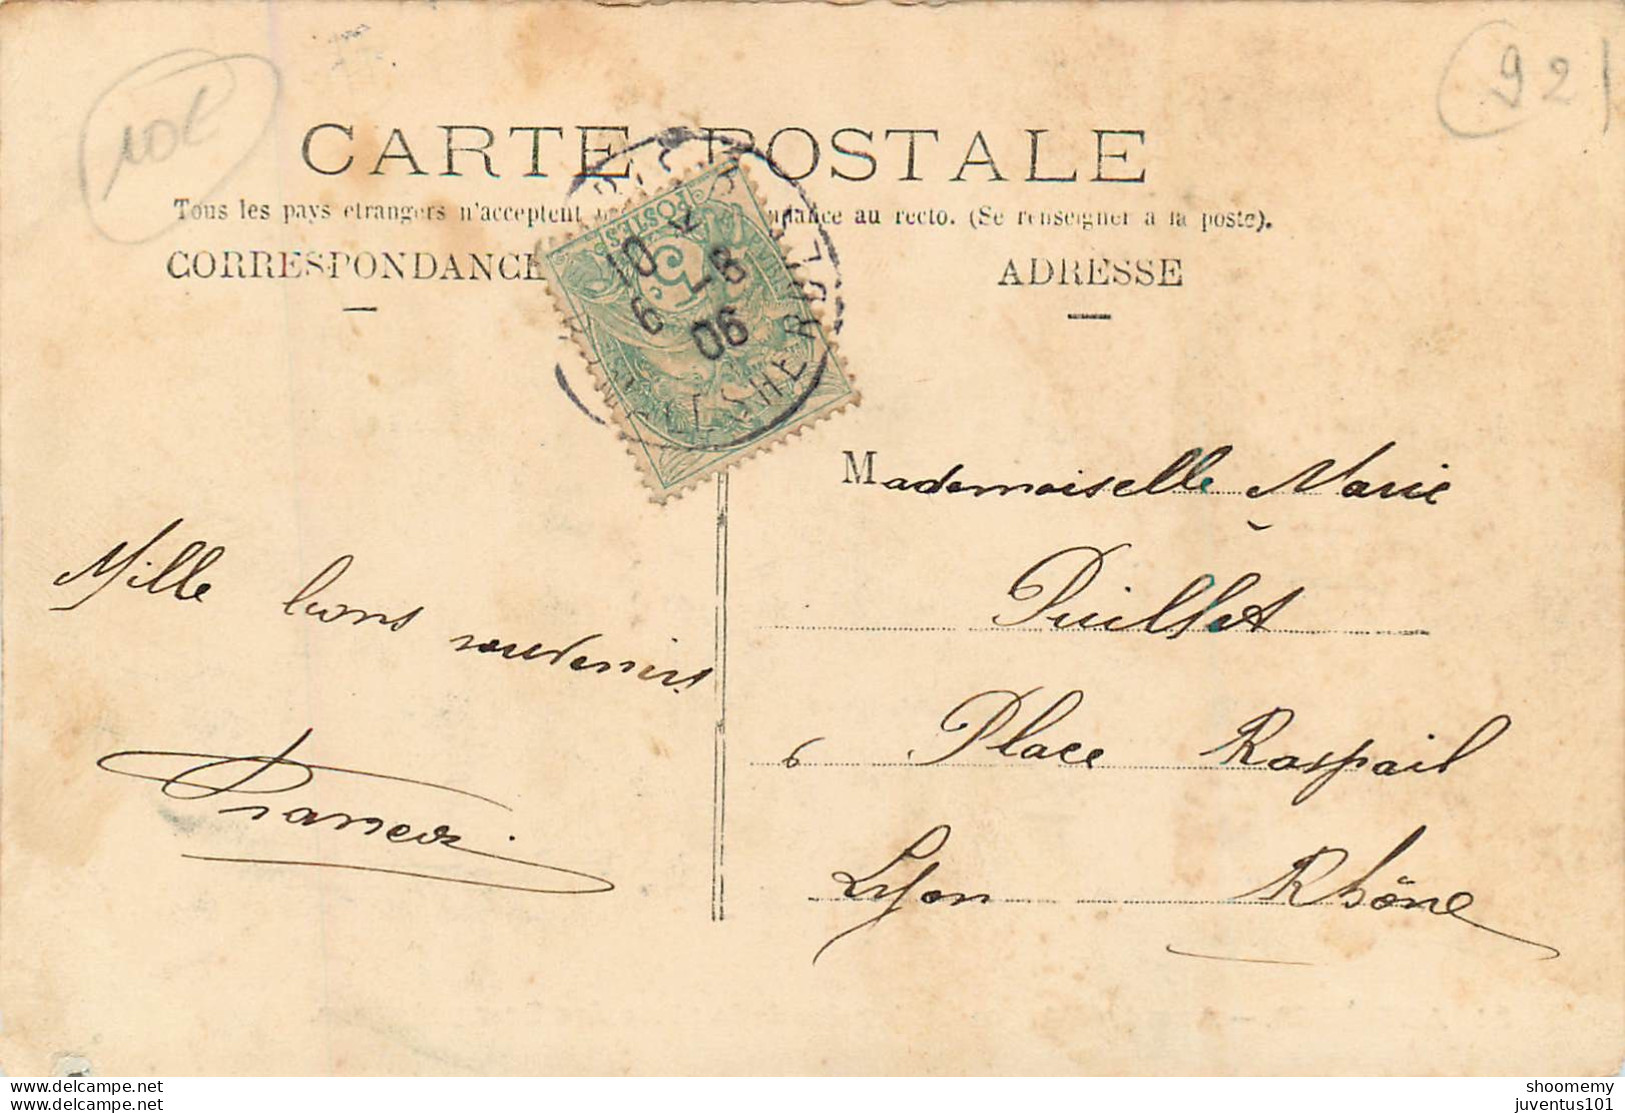 10€
92
CARTE POSTALE
Tous les pays etrangers n'acceptent au recto. (Se renseigner à la poste).
CORRESPONDANCE
ADRESSE
POSTES
5
10
6 - 8
06
Mademoiselle Marie
Puillet
6 Place Raspail
Lyon Rhône
Mille bons souvenirs
www.delcampe.net
shoomemy
juventus101